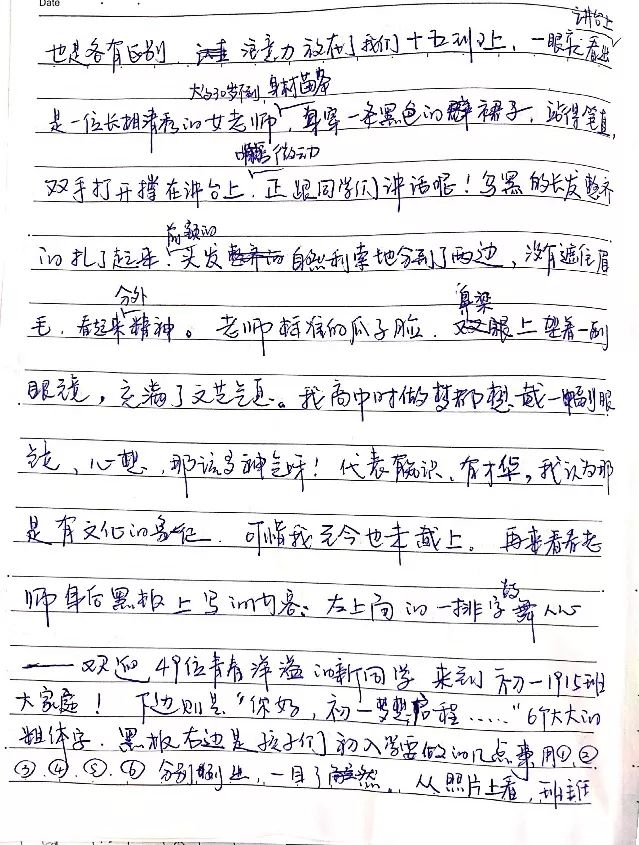 Date
讲台上
也是各有区别 注意力放在了我们十五班上，一眼就看出
大约30岁不到，身材苗条
是一位长相清秀的女老师，身穿一条黑色的裙子，站得笔直，
嘴唇微动
双手打开撑在讲台上，正跟同学们讲话呢！乌黑的长发整齐
前额的
的扎了起来，头发整齐而自然利索地分到了两边，没有遮住眉
分外
毛，看起来精神。老师标准的瓜子脸，双眼上望着一副
鼻梁
眼镜，充满了文艺气息。我高中时做梦都想戴一副眼
镜，心想，那该多神气呀！代表有知识、有才华，我认为那
是有文化的象征，可惜我至今也未戴上。再来看看老
师身后黑板上写的内容：左上面的一排字舞人心
的
——欢迎49位青春洋溢的新同学来到初一1915班
大家庭！下边则是“你好，初一梦想启程……”6个大大的
粗体字，黑板右边是孩子们初入学要做的几点事用①、②
③、④、⑤、⑥分别列出，一目了然。从照片上看，班主任